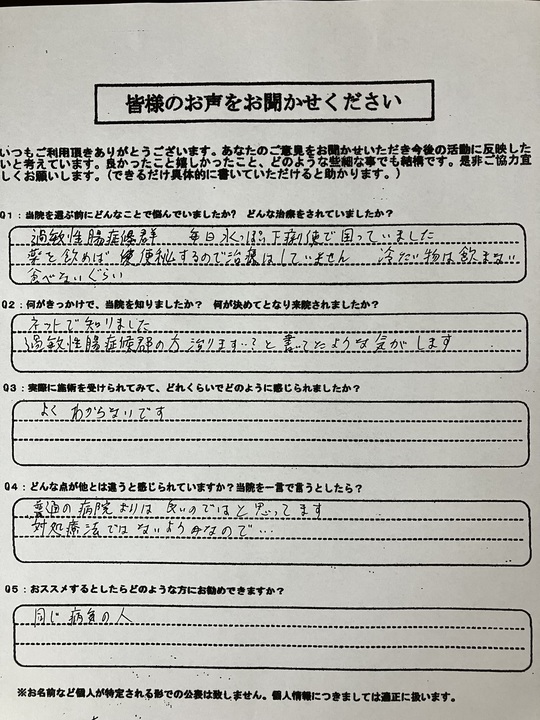 皆様のお声をお聞かせください
いつもご利用頂きありがとうございます。あなたのご意見をお聞かせいただき今後の活動に反映した
いと考えています。良かったこと嬉しかったこと、どのような些細な事でも結構です。是非ご協力宜
しくお願いします。(できるだけ具体的に書いていただけると助かります。)
Q1:当院を選ぶ前にどんなことで悩んでいましたか? どんな治療をされていましたか?
過敏性腸症候群 毎日水っぽい下痢便で困っていました
薬を飲めば 便秘するので治療はしていません 冷たい物は飲まない
食べないぐらい
Q2:何がきっかけで、当院を知りましたか? 何が決めてとなり来院されましたか?
ネットで知りました
過敏性腸症候郡の方治ります…?と書いてたような気がします
Q3:実際に施術を受けられてみて、どれくらいでどのように感じられましたか?
よく わからないです
Q4:どんな点が他とは違うと感じられていますか?当院を一言で言うとしたら?
普通の病院よりは 良いのではと思ってます
対処療法ではないようなので…
Q5:おススメするとしたらどのような方にお勧めできますか?
同じ病気の人
※お名前など個人が特定される形での公表は致しません。個人情報につきましては適正に扱います。